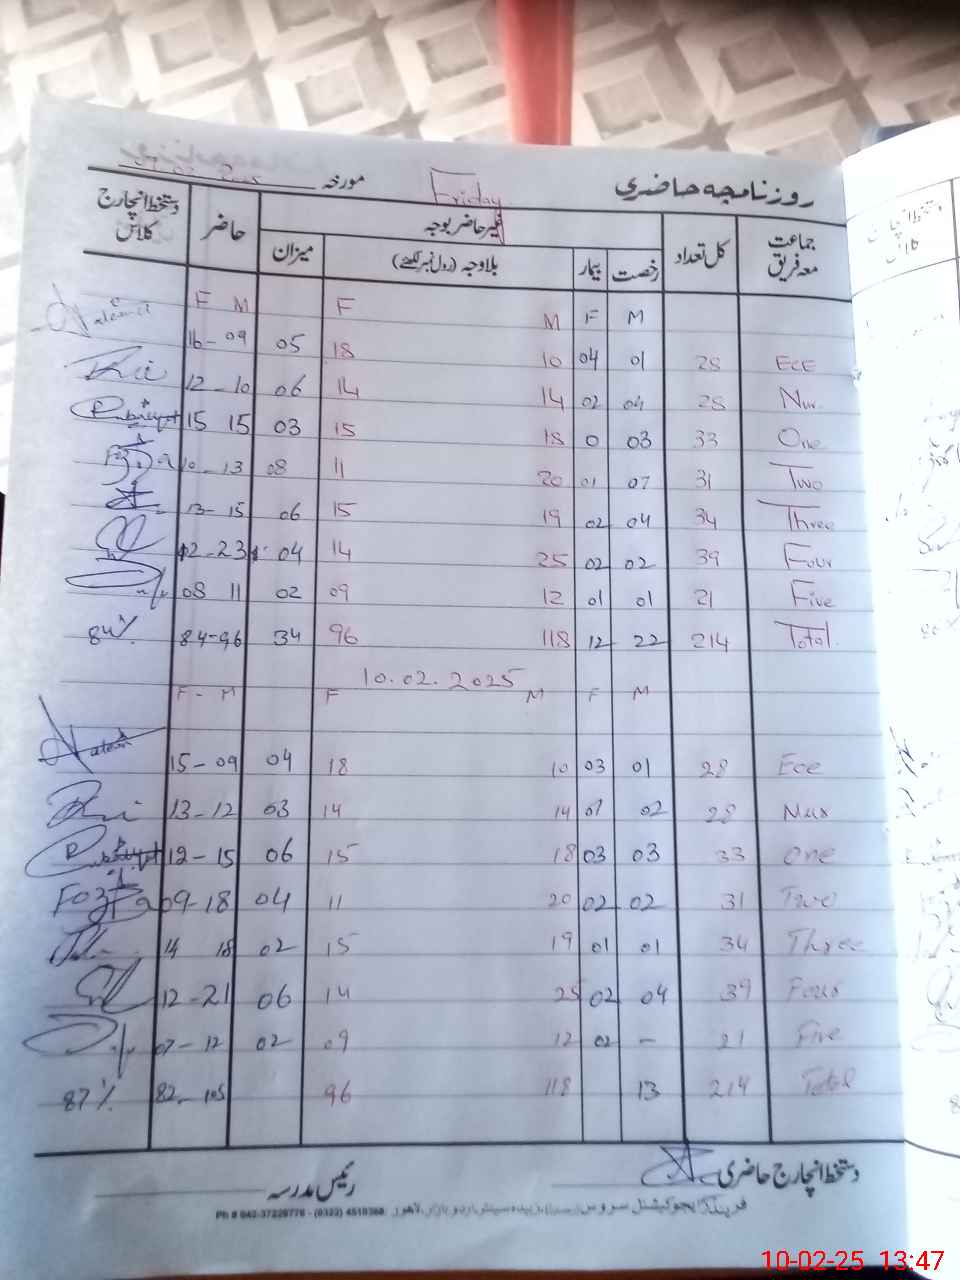 روزنامچہ حاضری Friday مورخہ
جماعت معہ فریق کل تعداد غیر حاضر بوجہ حاضر دستخط انچارج کلاس
رخصت بیمار بلاوجہ (رول نمبر لکھئے) میزان
F M F M F M
16 - 09 05 18 10 04 01 28 ECE
12 - 10 06 14 14 02 04 28 Nur.
15 15 03 15 18 0 03 33 One
10 - 13 08 11 20 01 07 31 Two
13 - 15 06 15 19 02 04 34 Three
12 - 23 04 14 25 02 02 39 Four
08 11 02 09 12 01 01 21 Five
84% 84-96 34 96 118 12 - 22 214 Total.
10.02.2025
F - M F M F M
15 - 09 04 18 10 03 01 28 Ece
13 - 12 03 14 14 01 02 28 Nur
12 - 15 06 15 18 03 03 33 One
09 - 18 04 11 20 02 02 31 Two
14 18 02 15 19 01 01 34 Three
12 - 21 06 14 25 02 04 39 Four
07 - 12 02 09 12 02 - 21 Five
87% 82 - 105 96 118 13 214 Total
دستخط انچارج حاضری رئیس مدرسہ
10-02-25 13:47